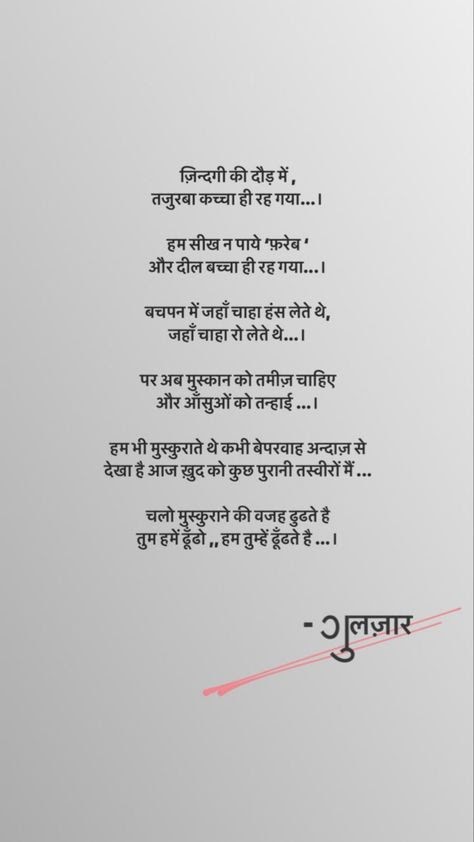 ज़िन्दगी की दौड़ में ,
तजुरबा कच्चा ही रह गया...।
हम सीख न पाये ‘फ़रेब ‘
और दील बच्चा ही रह गया...।
बचपन में जहाँ चाहा हंस लेते थे,
जहाँ चाहा रो लेते थे...।
पर अब मुस्कान को तमीज़ चाहिए
और आँसुओं को तन्हाई ...।
हम भी मुस्कुराते थे कभी बेपरवाह अन्दाज़ से
देखा है आज ख़ुद को कुछ पुरानी तस्वीरों मैं ...
चलो मुस्कुराने की वजह ढुढते है
तुम हमें ढूँढो ,, हम तुम्हें ढूँढते है ...।
- गुलज़ार